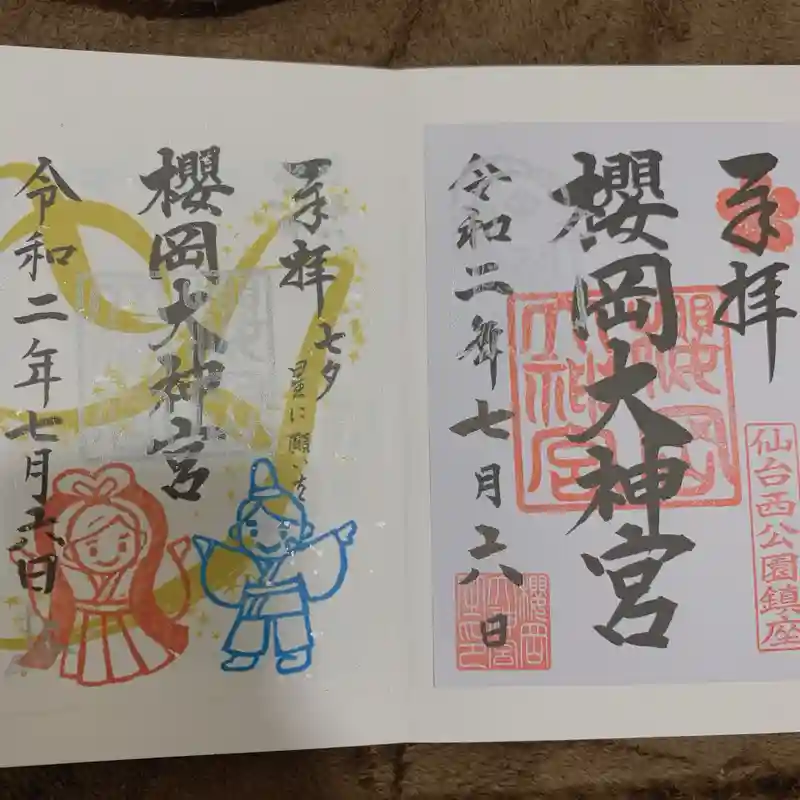 奉拝
櫻岡大神宮
令和二年七月六日
仙台西公園鎮座
櫻岡大神宮
奉拝
七夕
星に願いを
櫻岡大神宮
令和二年七月六日